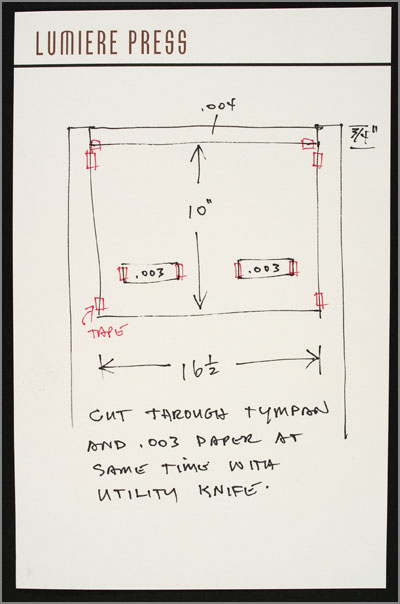 LUMIERE PRESS
.004
3/4"
10"
.003 .003
TAPE
16 1/2
CUT THROUGH TYMPAN
AND .003 PAPER AT
SAME TIME WITH
UTILITY KNIFE.